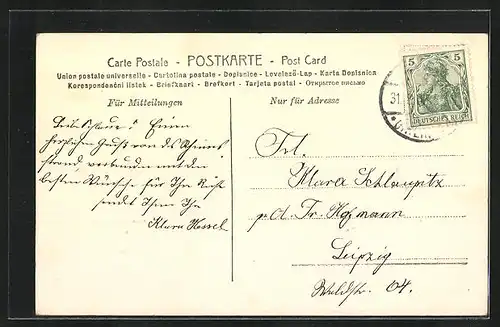 Carte Postale - POSTKARTE - Post Card
Union postale universelle - Cartolina postale - Dopisnice - Levelező-Lap - Karta Dopisnica
Korespondenční lístek - Briefkaart - Brefkort - Tarjeta postal - Открытое письмо
5 5
DEUTSCHES REICH
31.
Für Mitteilungen
einen
herzlichen Gruß von
verbunden mit den
besten für Ihr
sendet Ihnen Ihr
Klara Hessel
Nur für Adresse
Frl.
Klara Schlaupitz
p. d. Fr. Hofmann
Leipzig
Waldstr. 04.